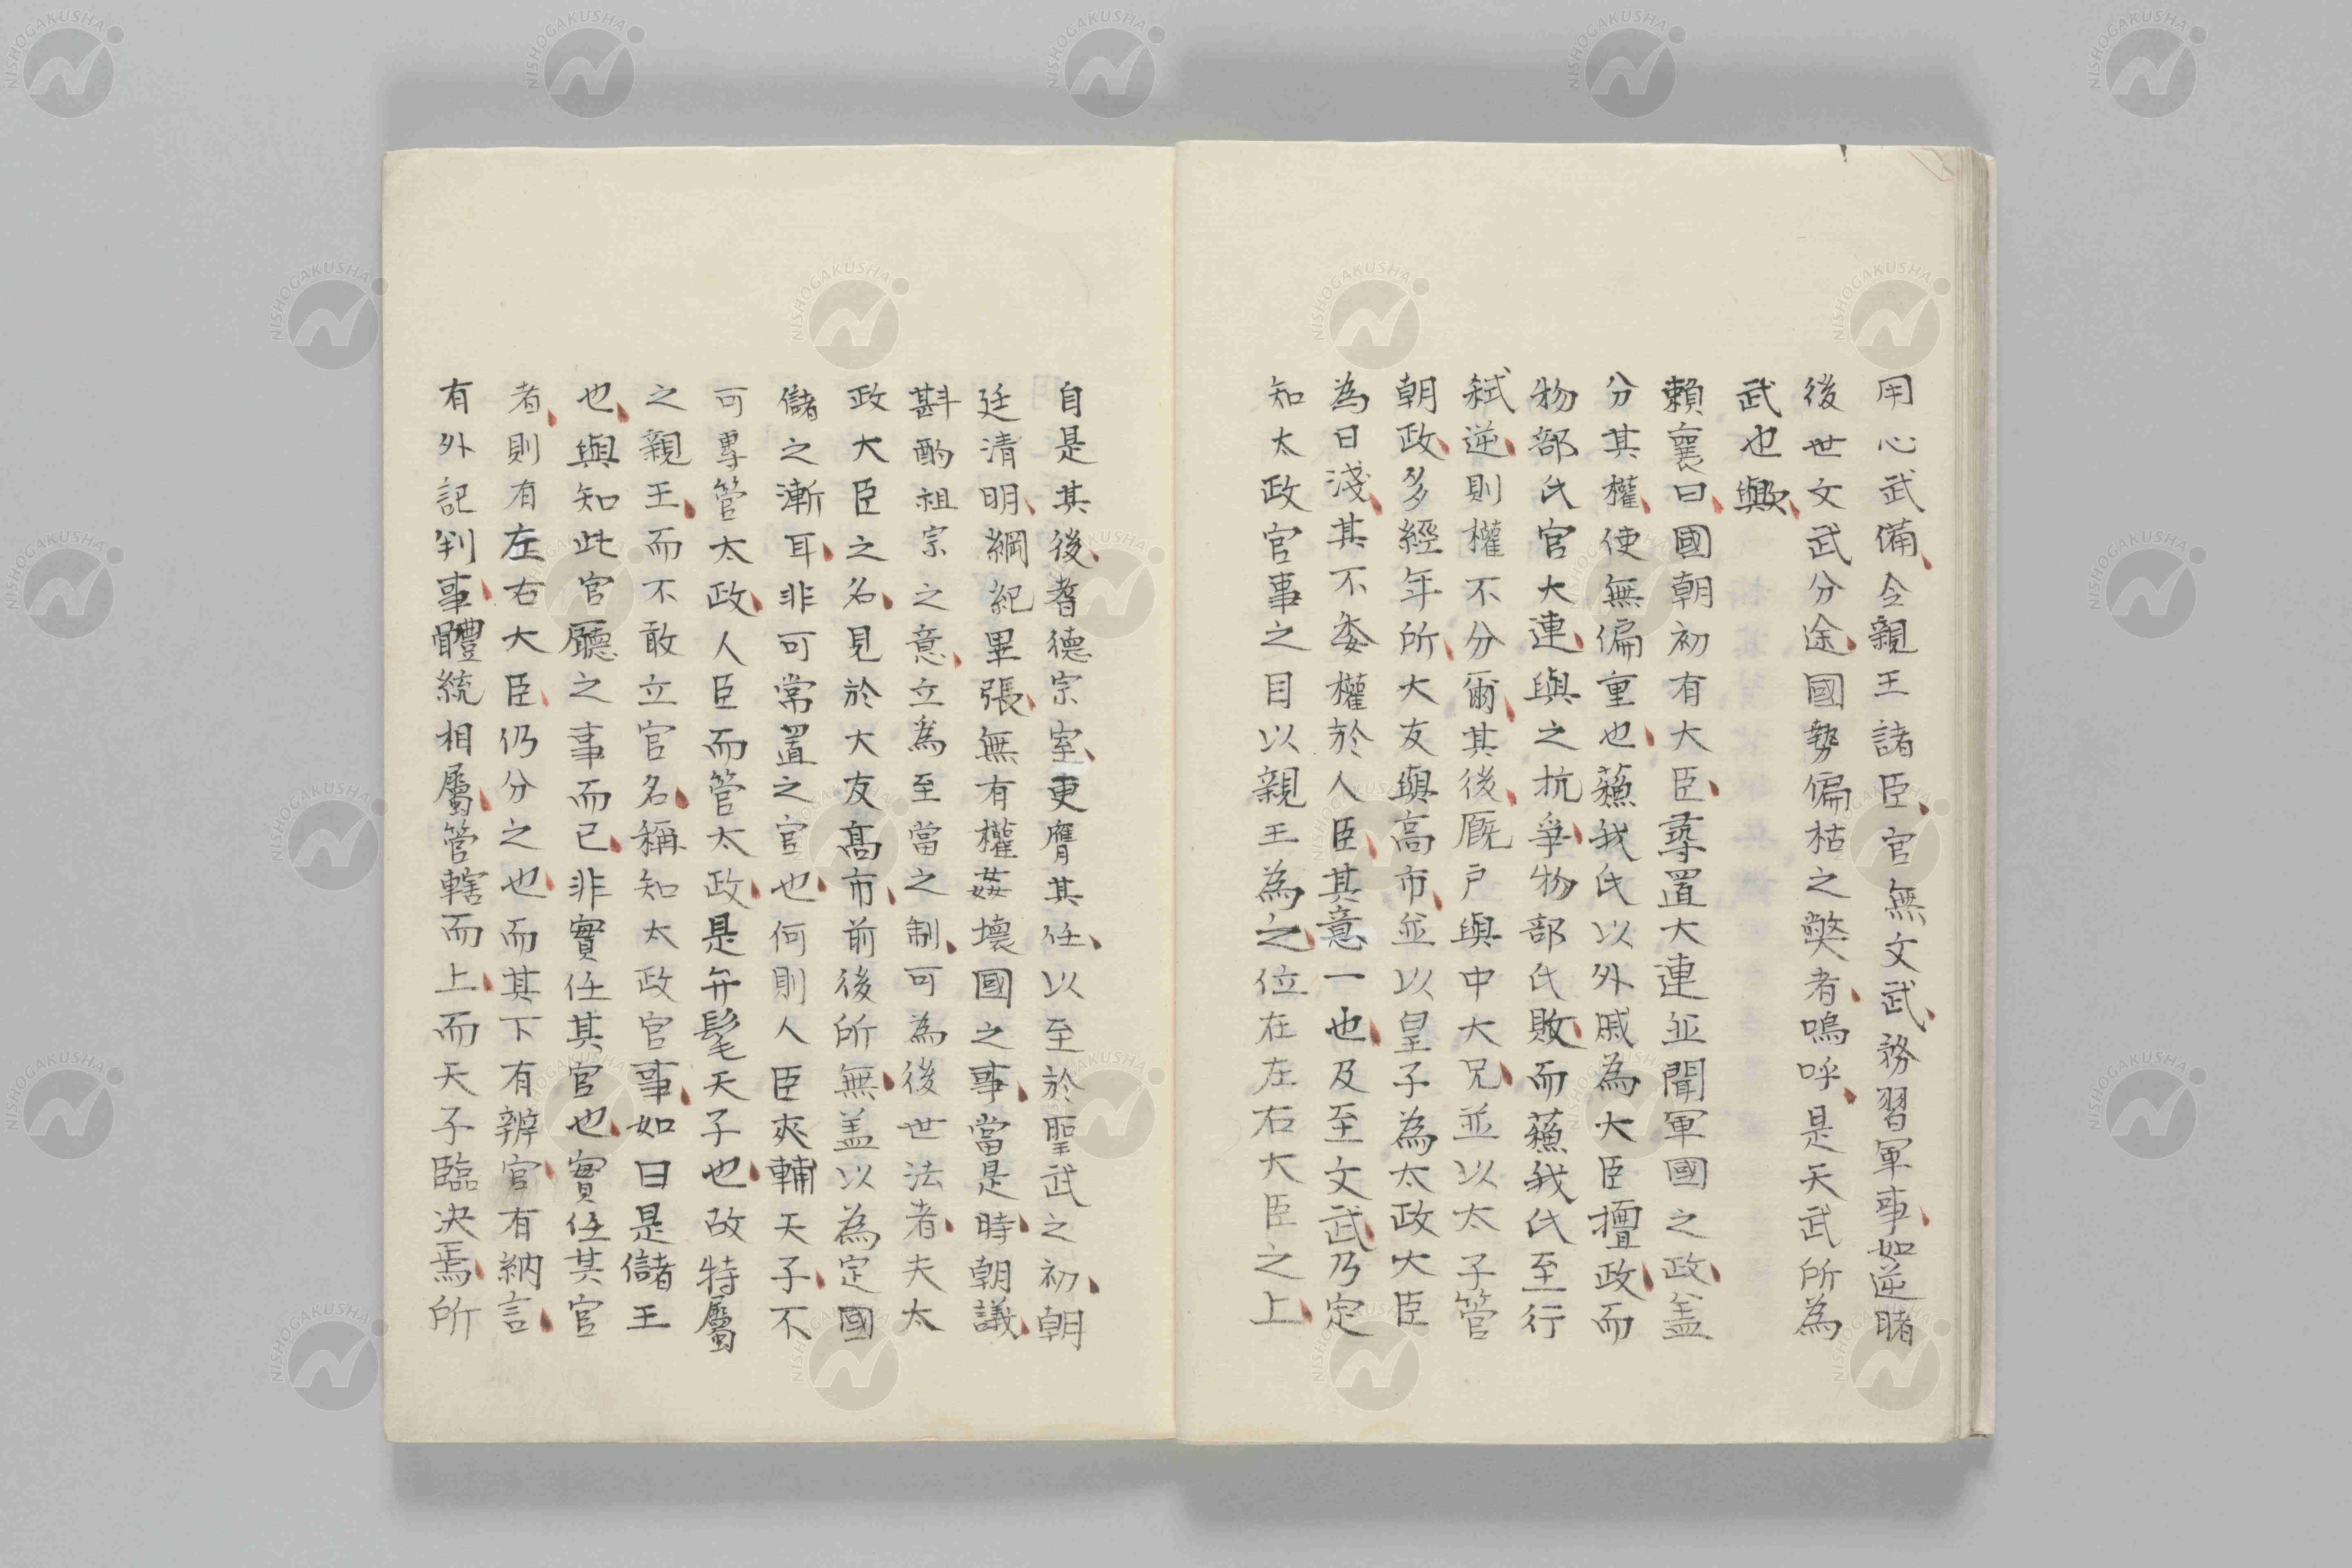 用心武備、令親王諸臣、官無文武、務習軍事、如逆睹
後世文武分途、國勢偏枯之弊者、嗚呼、是天武所為
武也歟、
賴襄曰、國朝初有大臣、尋置大連並聞軍國之政、盖
分其權、使無偏重也、蘓我氏以外戚為大臣擅政、而
物部氏官大連、與之抗爭、物部氏敗、而蘓我氏至行
弑逆、則權不分爾、其後、厩戸與中大兄、並以太子管
朝政、多經年所、大友與高市、並以皇子為太政大臣
為日淺、其不委權於人臣、其意一也、及至文武、乃定
知太政官事之目以親王為之、位在左右大臣之上、
自是其後、耆德宗室、更膺其任、以至於聖武之初、朝
廷清明、綱紀畢張、無有權姦壞國之事、當是時、朝議、
斟酌祖宗之意、立為至當之制、可為後世法者、夫太
政大臣之名、見於大友高市、前後所無、盖以為定國
儲之漸耳、非可常置之官也、何則人臣夾輔天子、不
可專管太政、人臣而管太政、是弁髦天子也、故特屬
之親王、而不敢立官名、稱知太政官事、如曰是儲王
也、與知此官廳之事而已、非實任其官也、實任其官
者、則有左右大臣、仍分之也、而其下有辨官、有納言、
有外記判事、體統相屬、管轄而上、而天子臨决焉、所
NISHOGAKUSHA